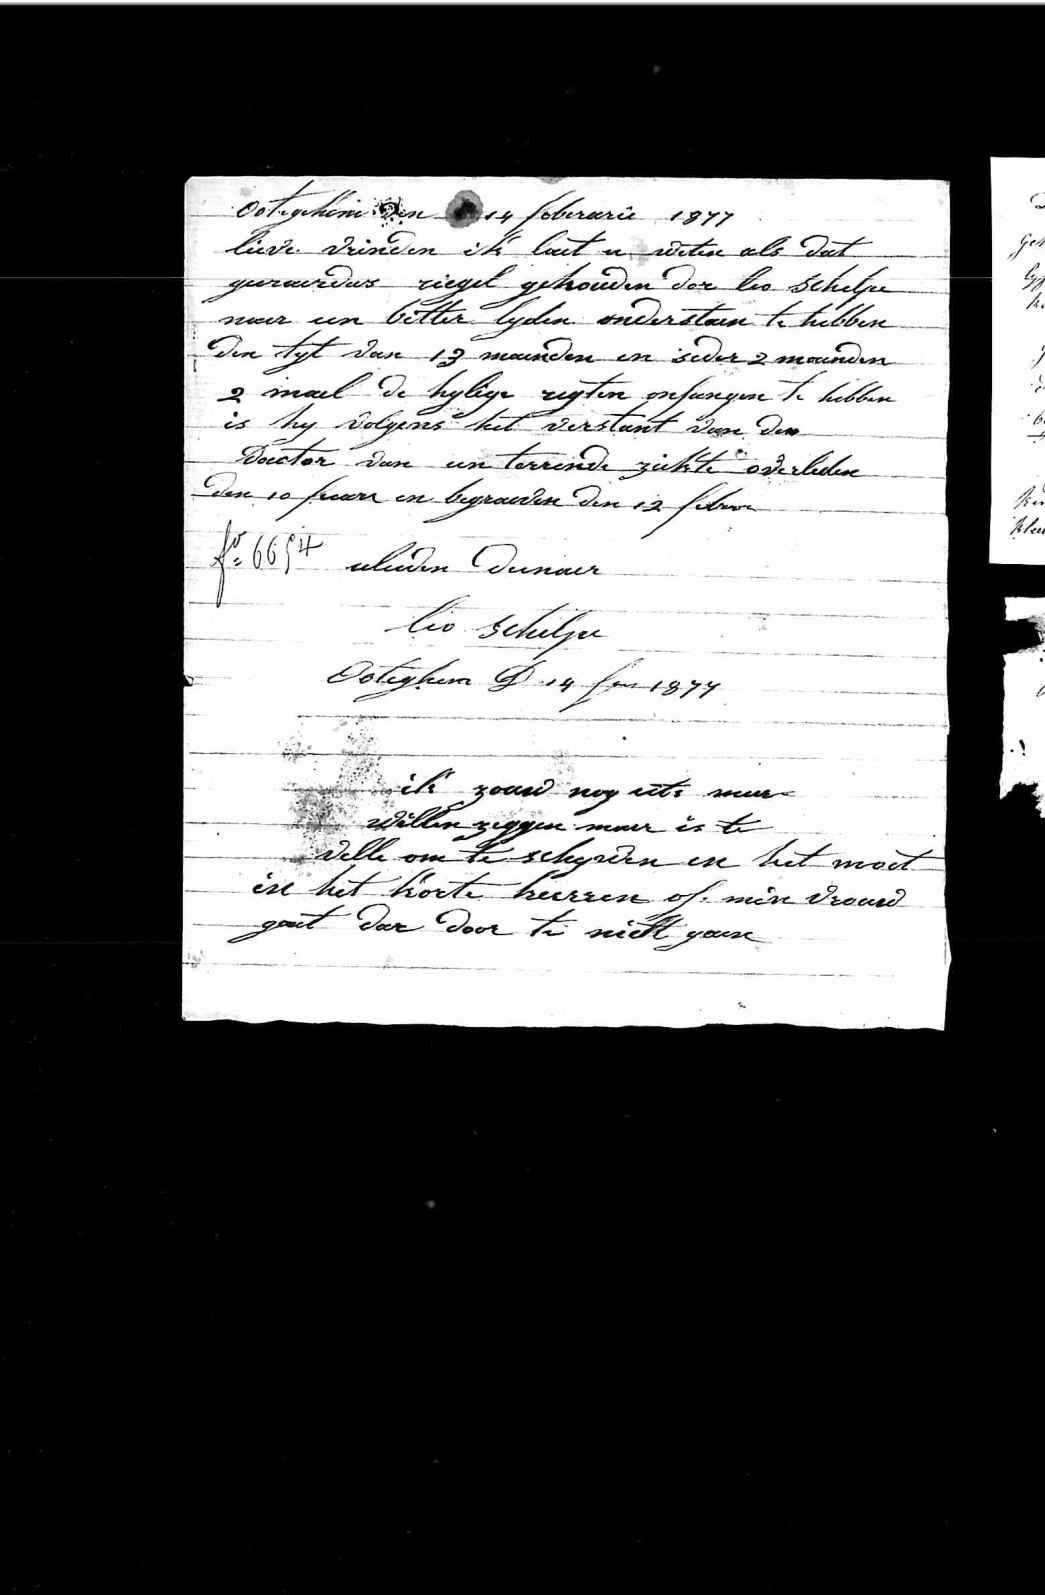 Ooteghem den 14 feberarie 1877
lieve vrinden ik laet u weten als dat
geraerdus riegel gehouden dor leo Schelpe
naer een bitter lyden onderstaen te hebben
den tyt van 13 maenden en seder 2 maenden
2 mael de hylige regten onfangen te hebben
is hy volgens het verstant van den
Doctor van een terrende zickte overleden
den 10 feuare en begraeven den 12 febrare
f° 6654 ulieden dienaer
leo schelpe
Ooteghem D 14 1877
ik zoud nog iets meer
willen zeggen maer is te
velle om te schryven en het moet
in het korte keeren of min vrouw
gaet dar door te niett gaen